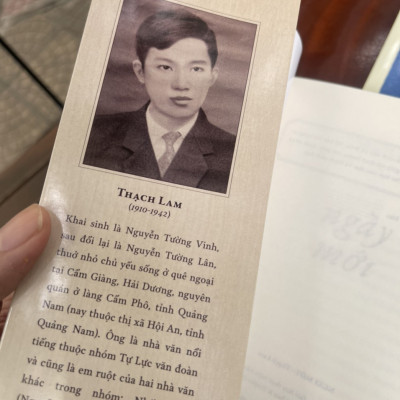 THẠCH LAM
(1910-1942)
Khai sinh là Nguyễn Tường Vinh,
sau đổi lại là Nguyễn Tường Lân,
thuở nhỏ chủ yếu sống ở quê ngoại
tại Cẩm Giàng, Hải Dương, nguyên
quán ở làng Cẩm Phô, tỉnh Quảng
Nam (nay thuộc thị xã Hội An, tỉnh
Quảng Nam). Ông là nhà văn nổi
tiếng thuộc nhóm Tự Lực văn đoàn
và cũng là em ruột của hai nhà văn
khác trong nhóm: